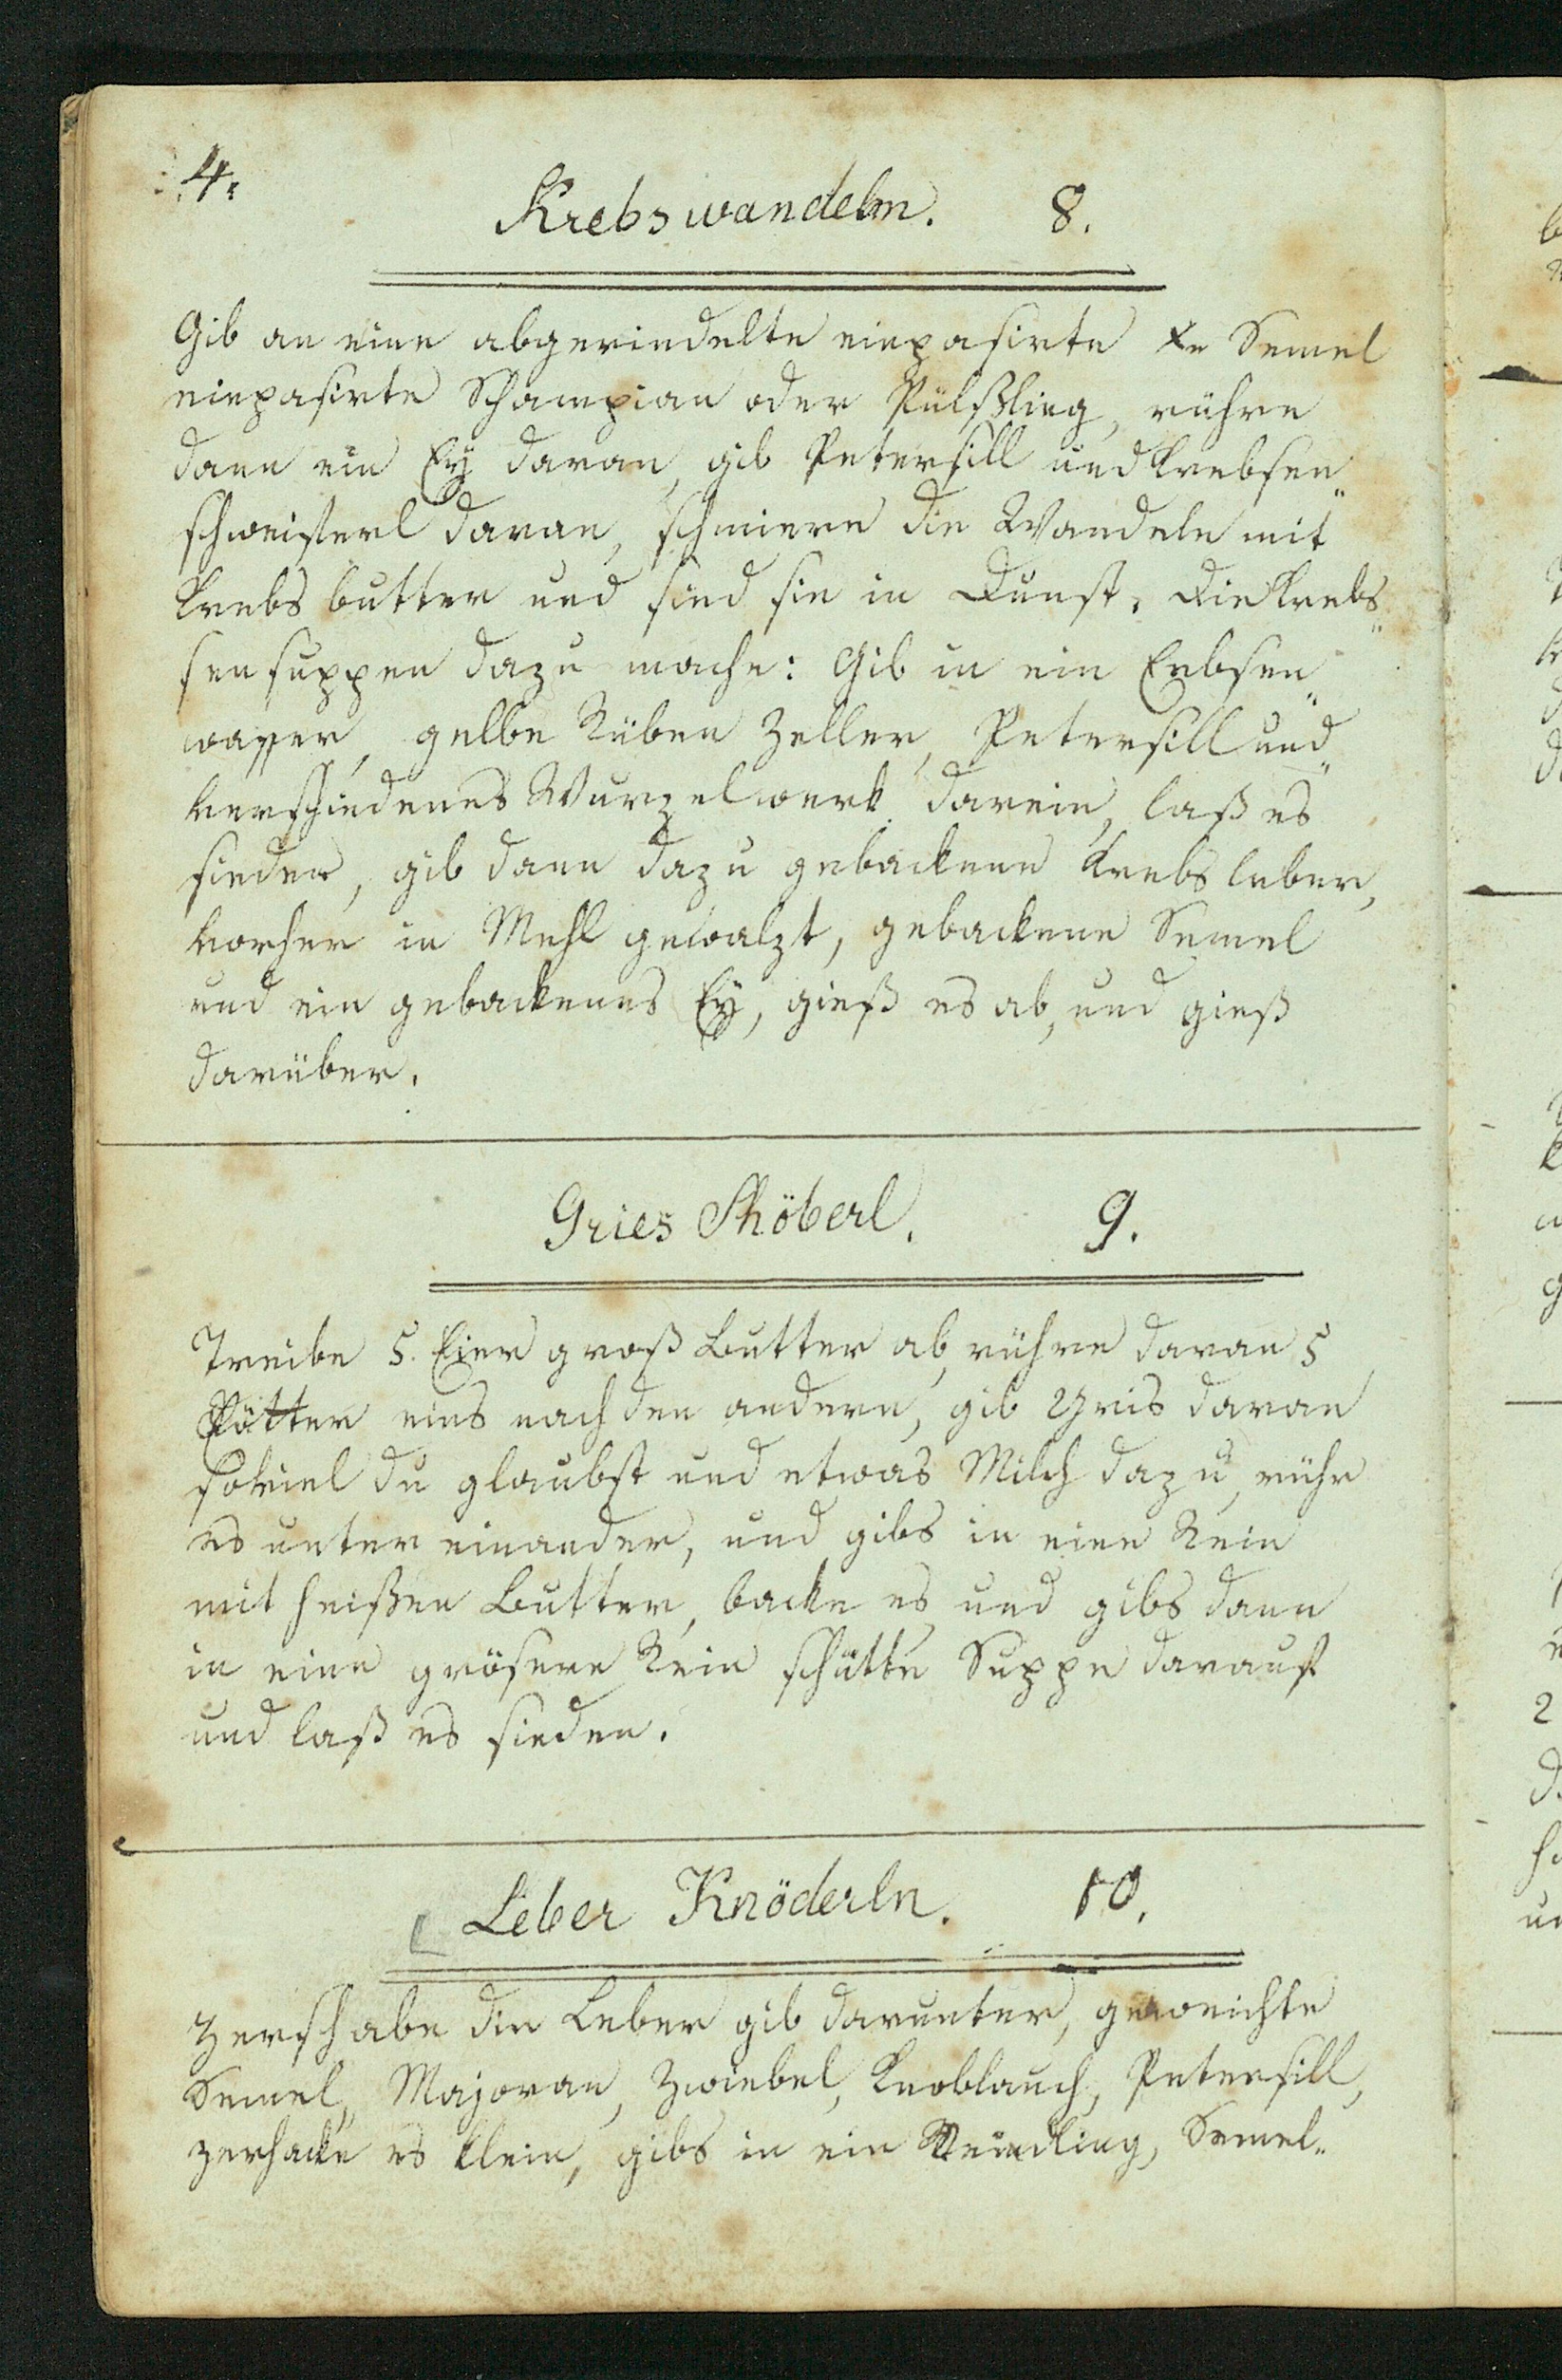 4.
Krebswandeln. 8.
Gib an eine abgerindelte einpasirte xr Semel
einpasirte Schampian oder Pülßling, rühre
dann ein Eÿ daran, gib Petersill und Krebsen„
schweiferl daran, schmiere die Wandeln mit
Krebsbutter und sied sie in Dunst, die Kreb„
sensuppen dazu mache: Gib in ein Erbsen„
wasser, gelbe Rüben Zeller, Petersill und
verschiedenes Wurzelwerk darein, laß es
sieden, gib dann dazu gebackene Krebsleber,
vorher in Mehl gewalzt, gebackene Semel
und ein gebackenes Eÿ, gieß es ab, und gieß
darüber.
Gries Shöberl. 9.
Treibe 5. Eier groß Butter ab, rühre daran 5
Dötter eins nach den andern, gib Gris daran
soviel du glaubst und etwas Milch dazu, rühr
es unter einander, und gibs in eine Rein
mit heißen Butter, backe es und gibs dann
in eine grösere Rein schütte Suppe darauf
und laß es sieden.
Leber Knöderln. 10.
Zerschabe die Leber gib darunter, geweichte
Semel, Majoran, Zwiebel, Knoblauch, Petersill,
zerhacke es klein, gibs in ein Reindling, Semel„